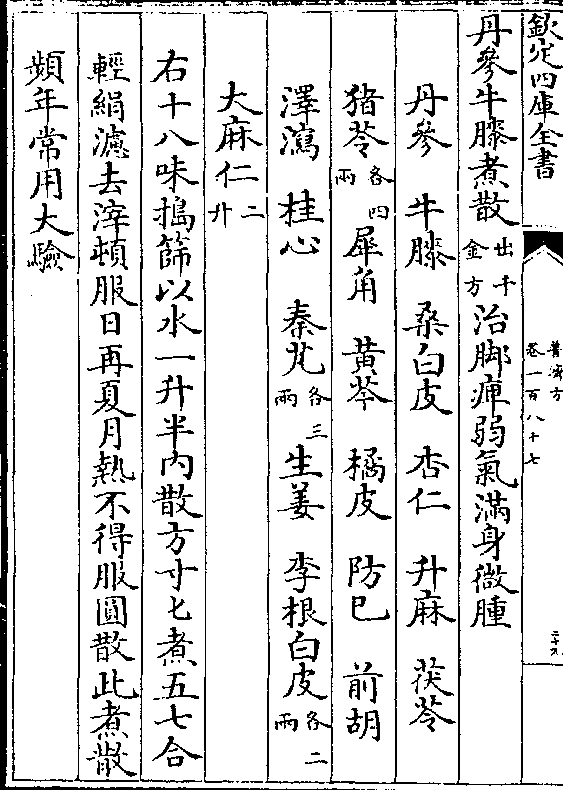 欽定四庫全書
普濟方
卷一百八十七
二十九
丹參牛膝煮散出千金方治脚痺弱氣滿身微腫
丹參　牛膝　桑白皮　杏仁　升麻　茯苓
猪苓各四兩　犀角　黄芩　橘皮　防已　前胡
澤瀉　桂心　秦艽各三兩　生姜　李根白皮各二兩
大麻仁二升
右十八味搗篩以水一升半内散方寸匕煮五七合
輕絹濾去滓頓服日再夏月熱不得服圓散此煮散
頻年常用大驗